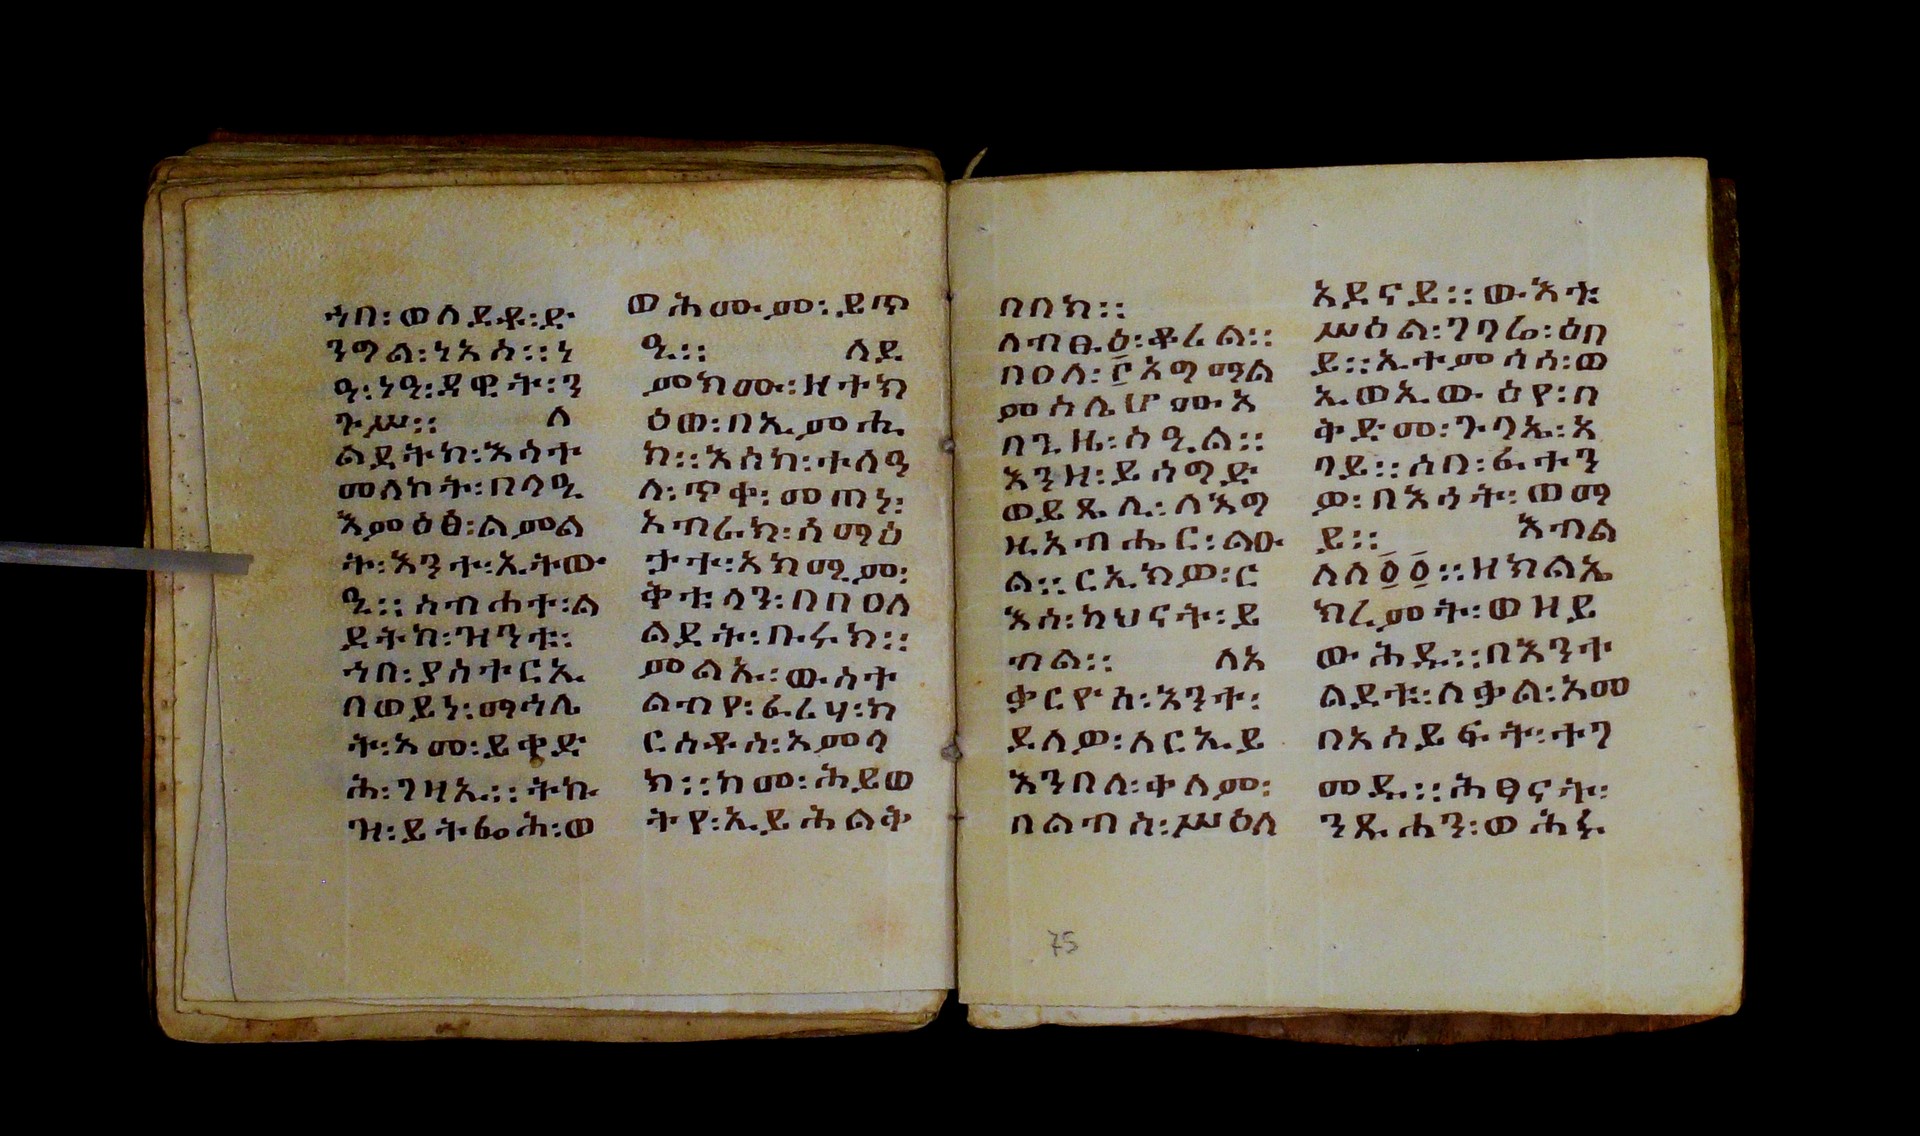 ኀበ፡ወለደቶ፡ድ
ንግል፡ነአሰ፡፡ነ
ዓ፡ነዓ፡ዳዊት፡ን
ጉሥ፡፡ ለ
ልደትከ፡እሳተ
መለኮት፡በላዒ
እምዕፅ፡ልምል
ት፡እንተ፡ኢትው
ዒ፡፡ስብሐተ፡ል
ደትከ፡ዝንቱ፡
ኀበ፡ያስተርኢ
በወይነ፡ማኅሌ
ት፡አመ፡ይቄድ
ሕ፡ገዛኢ፡፡ትኩ
ዝ፡ይትፌሣሕ፡ወ
ወሕሙም፡ይጥ
ዒ፡፡ ለደ
ምከሙ፡ዘተክ
ዕወ፡በኢምሒ
ክ፡፡እስከ፡ተለዓ
ለ፡ጥቀ፡መጠነ፡
አብራክ፡ሰማዕ
ታተ፡አክሚም፡
ቅቱላን፡በበዐለ
ልደት፡ቡሩክ፡፡
ምልኡ፡ውስተ
ልብየ፡ፈረሃ፡ክ
ርስቶስ፡አምላ
ክ፡፡ከመ፡ሕይወ
ትየ፡ኢይሕልቅ
በበክ፡፡
ለብፁዕ፡ቆረል፡፡
በዐለ፡፫አግማል
ምስሌሆሙ፡አ
በጊዜ፡ስዒል፡፡
እንዘ፡ይሰግድ
ወይጼሊ፡ለእግ
ዚአብሔር፡ልዑ
ል፡፡ርኢክዎ፡ር
እሰ፡ከህናት፡ይ
ብል፡፡ ለአ
ቃርዮስ፡እንተ፡
ደለዎ፡ለርኢይ
እንበለ፡ቀለም፡
በልብስ፡ሥዕለ
አደናይ፡፡ውእቱ
ሥዕል፡ገባሬ፡ዕበ
ይ፡፡ኢተምሳሰ፡ወ
ኢወኢው፡ዕየ፡በ
ቅድመ፡ጉባኤ፡አ
ባይ፡፡ሰበ፡ፈተን
ዎ፡በእሳት፡ወማ
ይ፡፡ እብል
ለለ፬፬፡፡ዘክልኤ
ክረምት፡ወዝይ
ውሕዱ፡፡በእንተ
ልደቱ፡ለቃል፡አመ
በአሰይፍት፡ተገ
መዱ፡፡ሕፃናት፡
ንጹሐን፡ወሕፉ
75